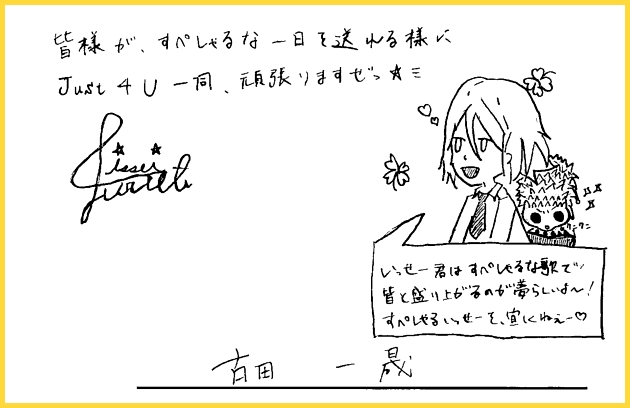 皆様が、すぺしゃるな一日を送れる様に
Just 4 U 一同、頑張りますぜっ☆ミ
いっせー君はすぺしゃるな歌で
皆と盛り上がるのが夢らしいよ〜！
すぺしゃるいっせーを、宜しくねぇー♡
古田 一晟